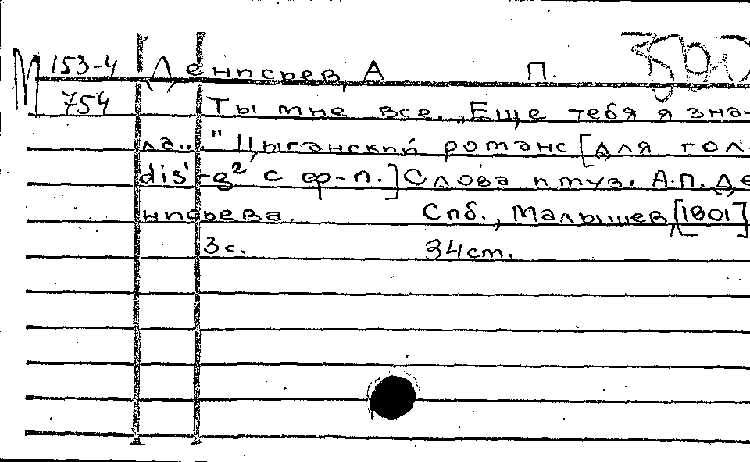 М 153-4 Денисьев, А. П.
754 Ты мне все. „Еще тебя я зна-
ла..." Цыганский романс [для гол.
dis'-g² с ф-п.] Слова и муз. А.П. Де-
нисьева. Спб., Малышев, [1901]
3с. 34ст.